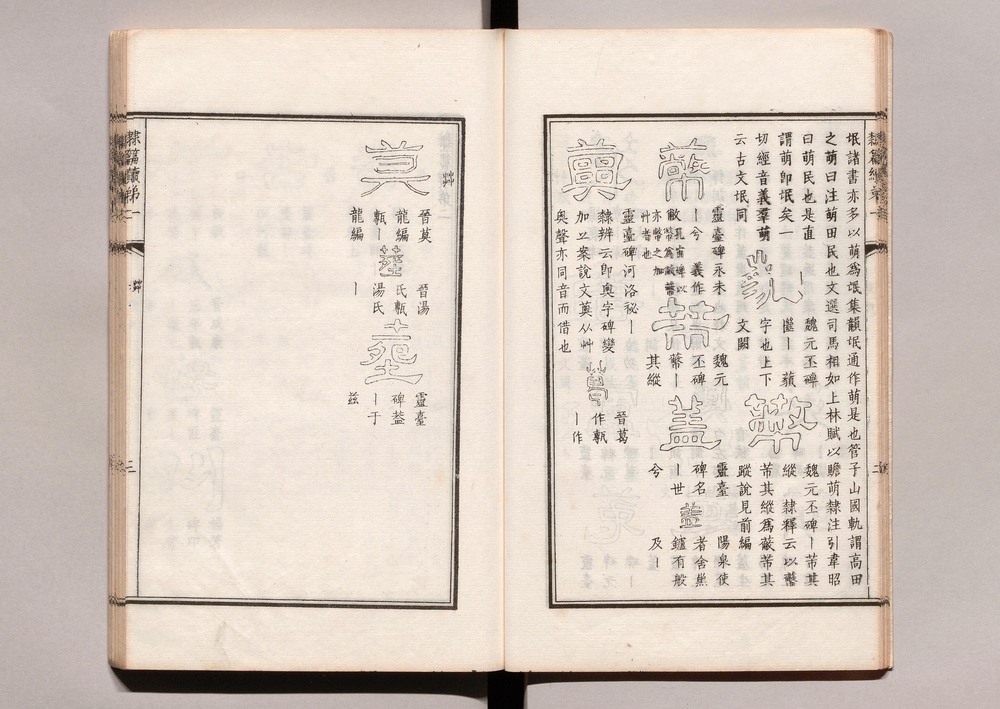 氓諸書亦多以萌爲氓集韻氓通作萌是也管子山國軌謂高田
之萌曰注萌田民也文選司馬相如上林賦以贍萌隸注引韋昭
曰萌民也是直
謂萌卽氓矣一
切經音義羣萌
云古文氓同
魏元丕碑
㡭丨蘋
字也上下
文闕
魏元丕碑丨芾其
縱 隸釋云以蔽
芾其縱爲蔽芾其
蹤說見前編
靈臺碑永未
丨兮 義作
敝孔宙碑以
亦幣之加
艸者也
芾
魏元
丕碑
丨
其縱
蓋
靈臺
碑名
丨世
兮
陽泉使
者舍熏
鑪有般
及丨
靈臺碑河洛秘丨
隸辨云卽奧字碑變
加艹案說文薁从艸
奧聲亦同音而借也
葛
晉葛
作甎
丨作
茻
莫
晉莫
龍編
甎丨
龍編
晉湯
氏甎
湯氏
丨
靈臺
碑葢
丨于
茲
隸篇續第一